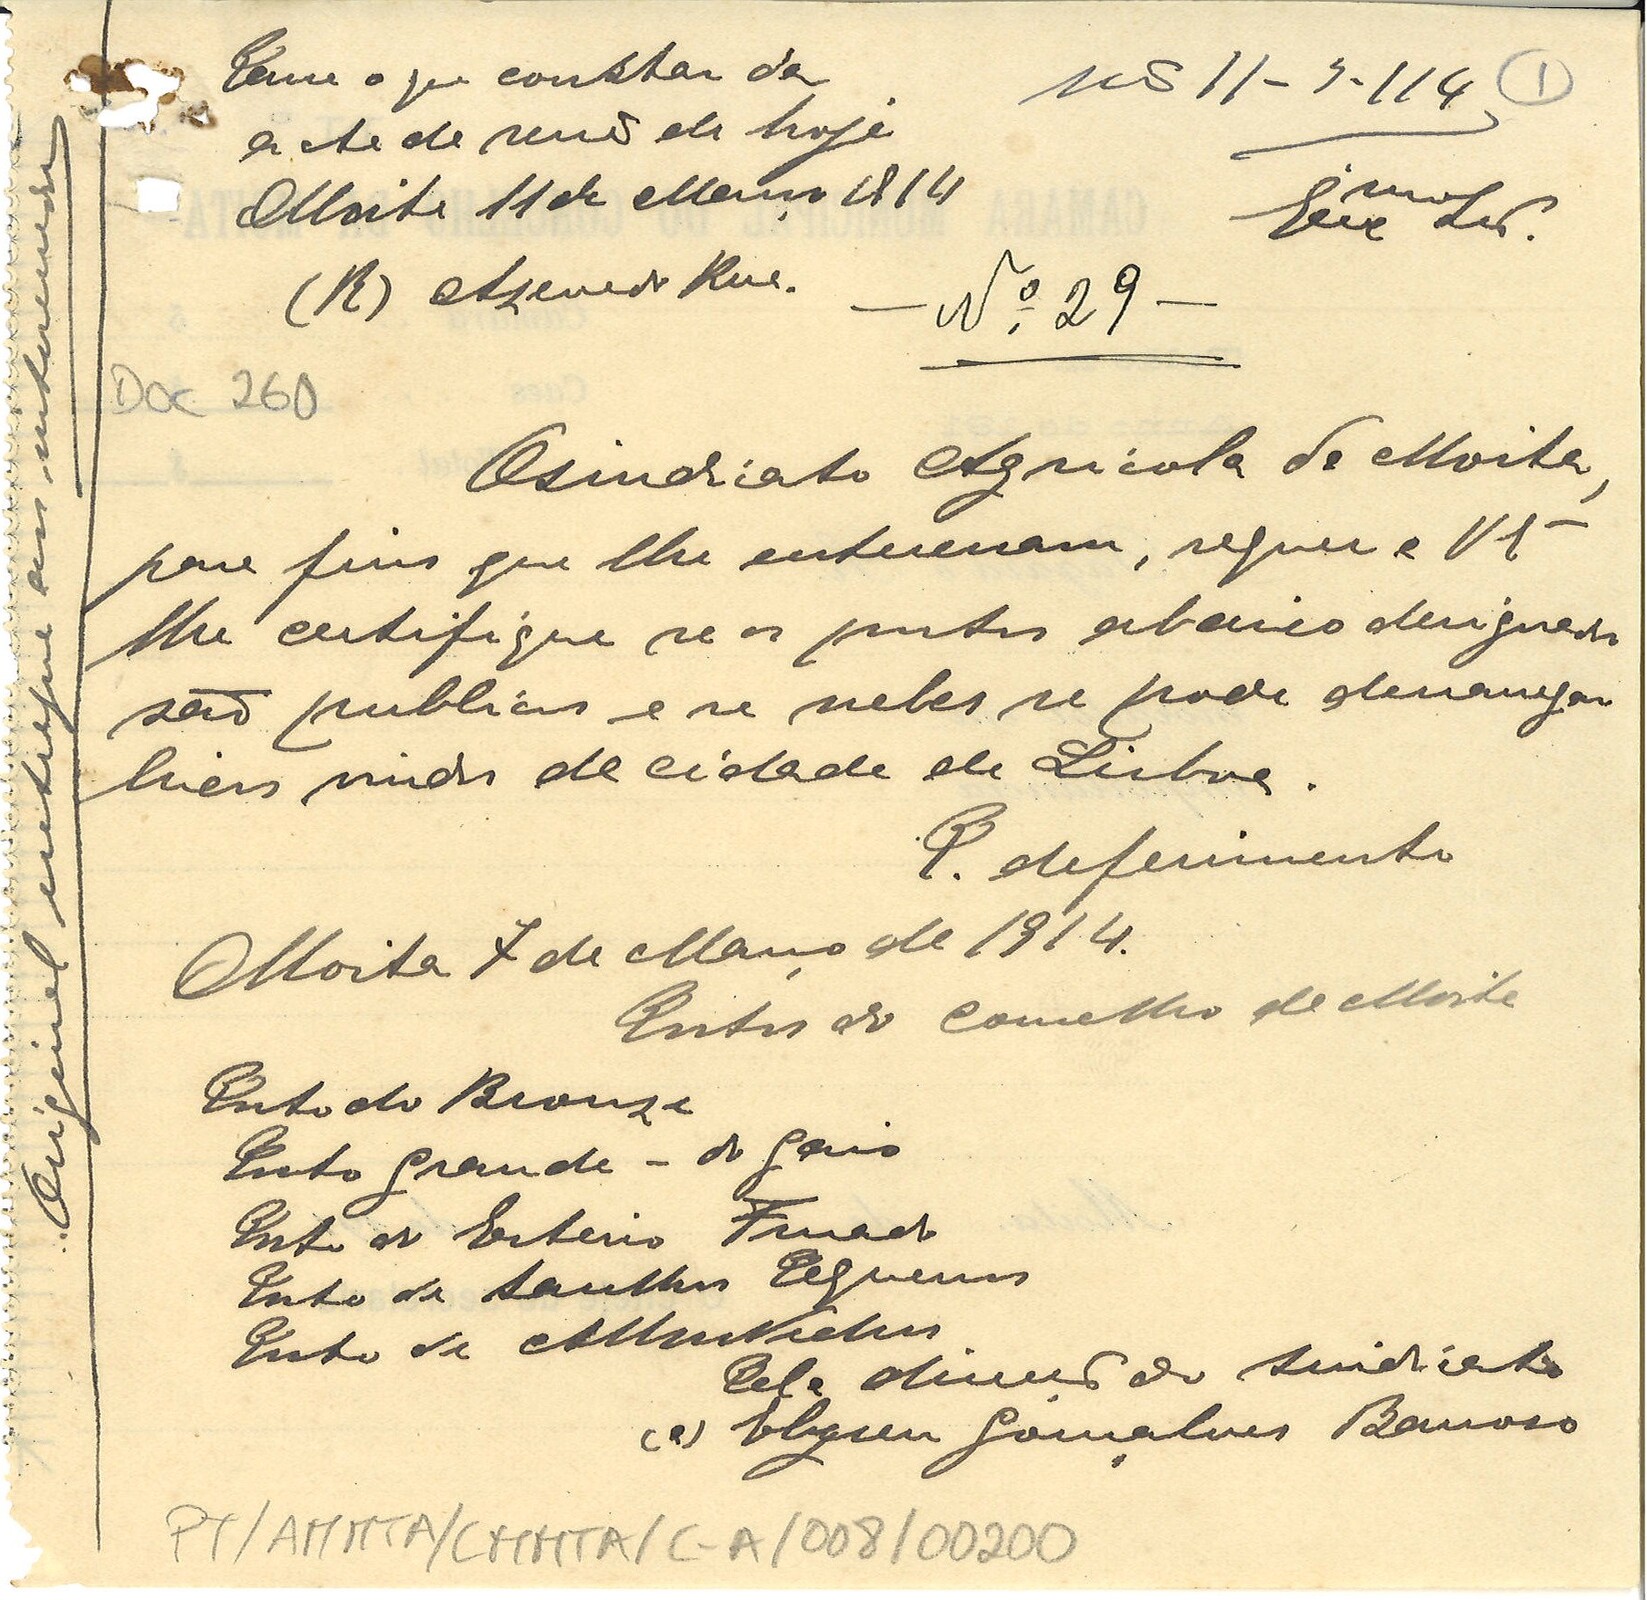 Tome o que constar da
acta de sessão de hoje
Moita 11 de Março 1914
(R) Azevedo Rua.
11-3-914
1
Exmo Snr.
— Nº 29 —
Doc 260
O sindicato Agricola da Moita,
para fins que lhe enteressam, requer a V Ex
lhe certifique se os portos abaixo designados
são publicos e se neles se pode desnavegar
vindos da cidade de Lisboa.
P. deferimento
Moita 7 de Março de 1914.
Portos do concelho da Moita
Porto do Bronze
Porto Grande - do Gaio
Porto do Esteiro Furado
Porto de Sarilhos Pequenos
Porto de Alhos Vedros
Pela direcção do sindicato
(a) Elyseu Gonçalves Barroso
Original entregue aos interessados
PT/AMMTA/CMMTA/C-A/008/00200